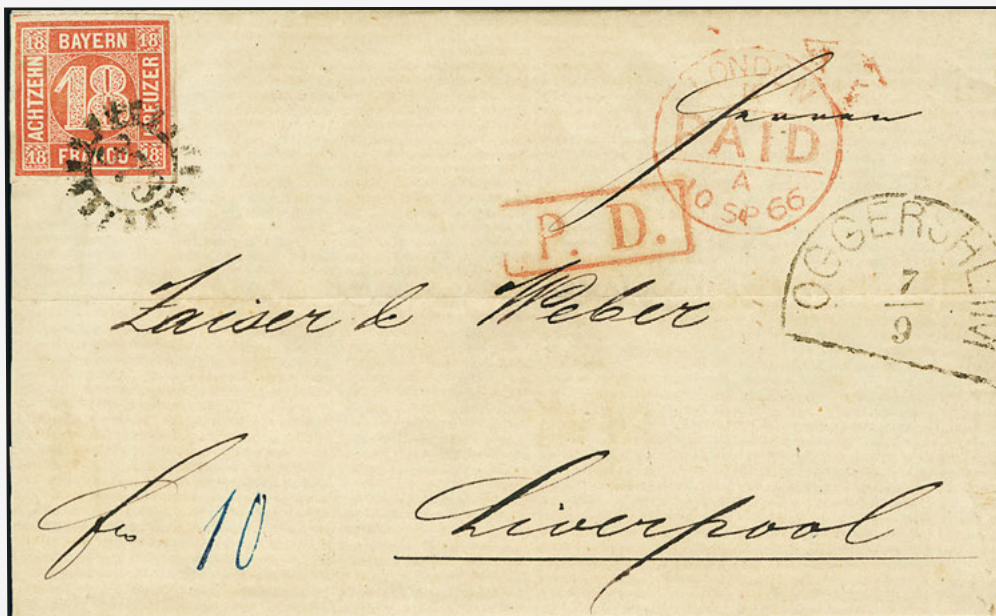 18 BAYERN 18
ACHTZEHN 18 KREUZER
18 FRANCO 18
LONDON
PAID
A
10 SP 66
Herren
P. D.
OGGERSHEIM
7
9
Zaiser & Weber
fro 10
Liverpool